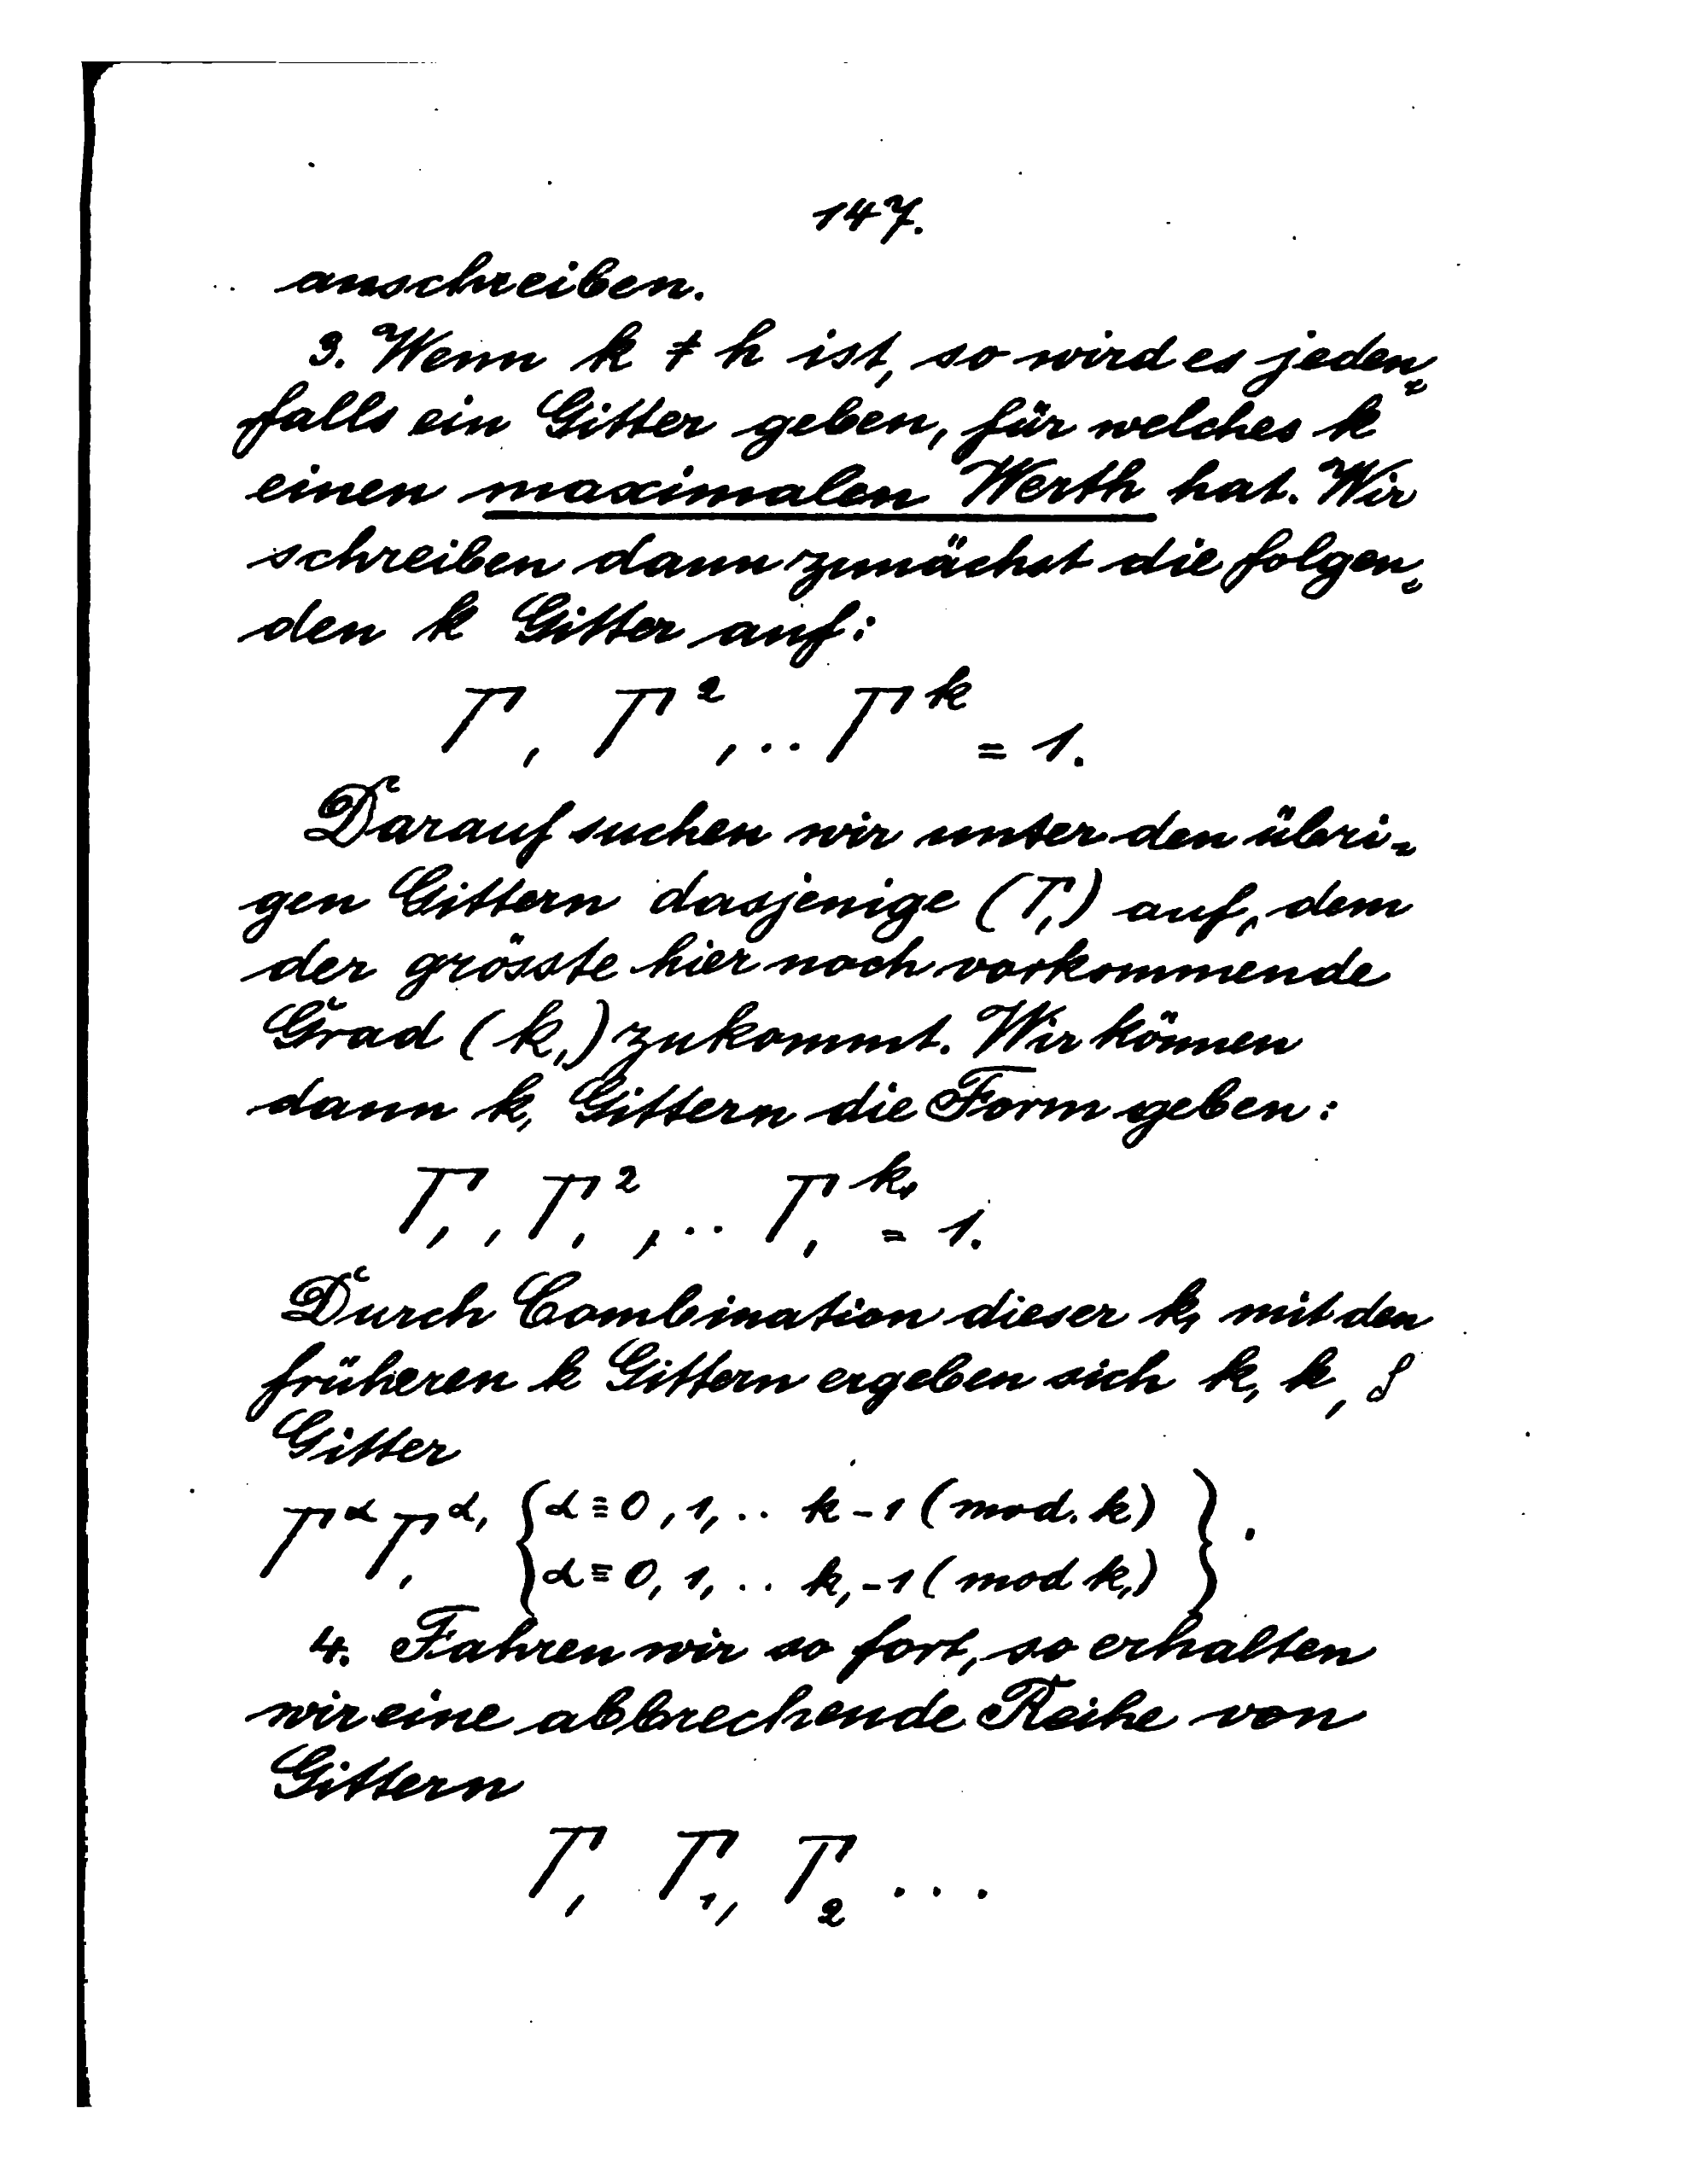 147.
anschreiben.
3. Wenn k ≠ h ist, so wird es jeden-
falls ein Gitter geben, für welches k
einen maximalen Werth hat. Wir
schreiben dann zunächst die folgen-
den k Gitter auf:
Γ, Γ², .. Γᵏ = 1.
Darauf suchen wir unter den übri-
gen Gittern dasjenige (Γ₁) auf, dem
der grösste hier noch vorkommende
Grad (k₁) zukommt. Wir können
dann k₁ Gittern die Form geben:
Γ₁, Γ₁², .. Γ₁^k₁ = 1.
Durch Combination dieser k₁ mit den
früheren k Gittern ergeben sich k, k₁
Gitter
Γ^α Γ₁^α₁ { α ≡ 0, 1, .. k - 1 (mod. k)
α ≡ 0, 1, .. k₁ - 1 (mod k₁) }.
4. Fahren wir so fort, so erhalten
wir eine abbrechende Reihe von
Gittern
Γ, Γ₁, Γ₂ ...